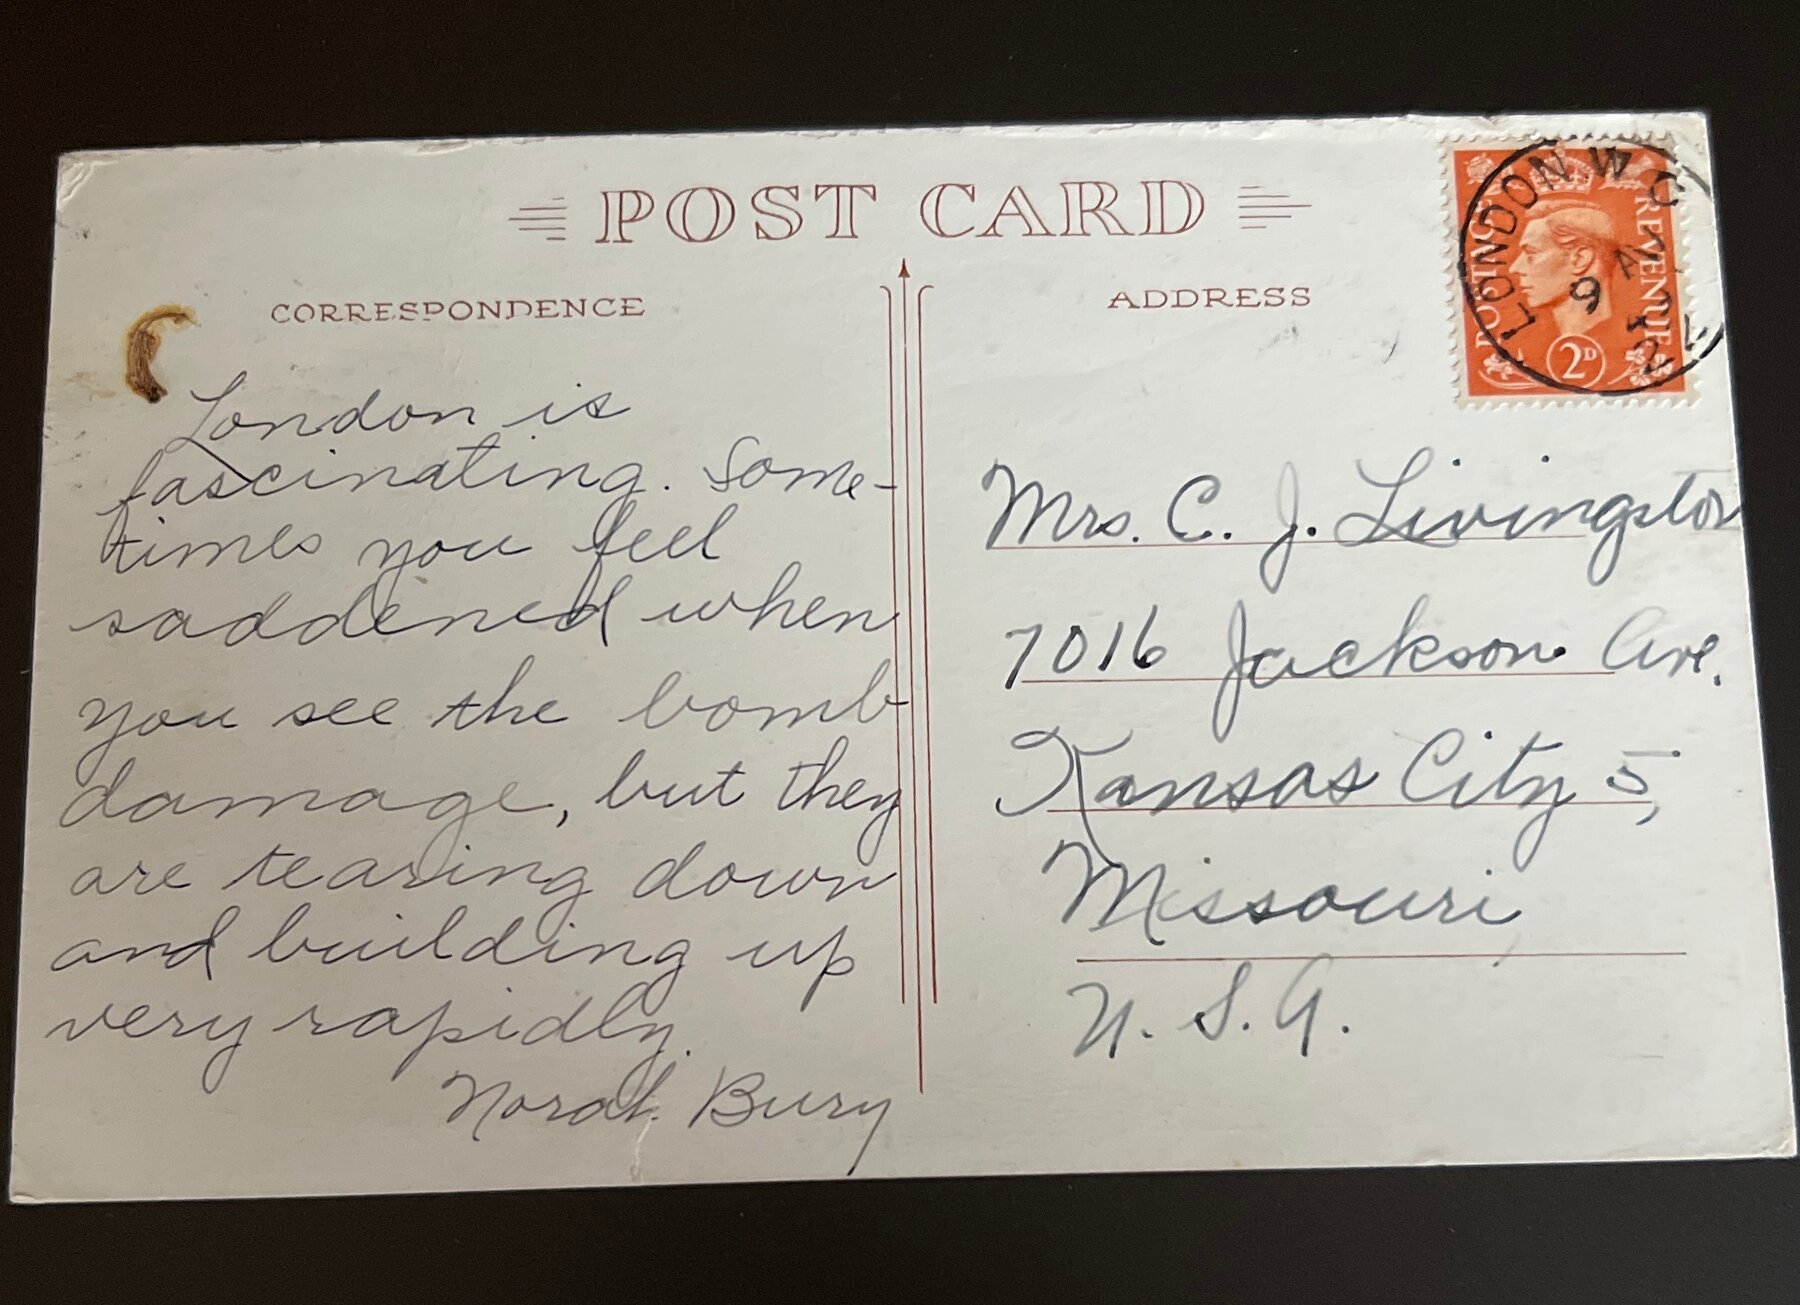 POST CARD
CORRESPONDENCE
London is
fascinating. Some-
times you feel
saddened when
you see the bomb
damage, but they
are tearing down
and building up
very rapidly.
Norah Bury
ADDRESS
POSTAGE REVENUE
2D
LONDON. W C
9 AU
Mrs. C. J. Livingston
7016 Jackson Ave.
Kansas City 5,
Missouri,
U. S. A.